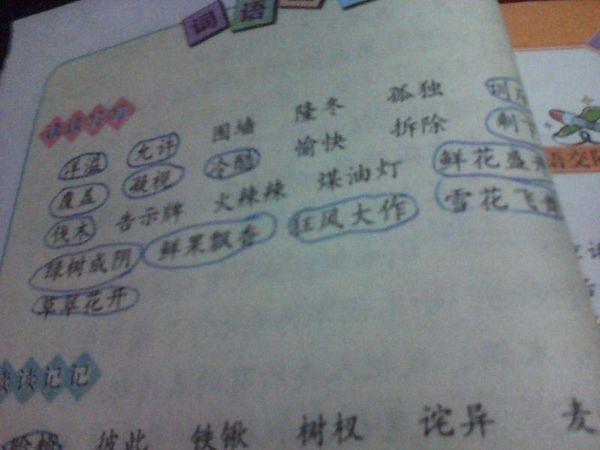 词语
读读写写
洋溢 允许 围墙 隆冬 孤独
覆盖 凝视 冷酷 愉快 拆除
伐木 告示牌 火辣辣 煤油灯 鲜花盛
绿树成阴 鲜果飘香 狂风大作 雪花飞
草翠花开
读读记记
彼此 铁锹 树杈 诧异 麦
语交际